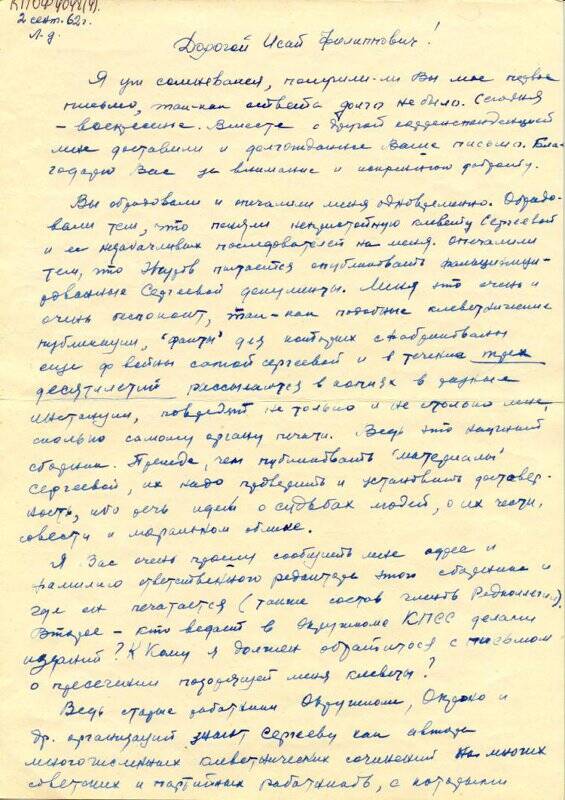 КПОФ4048(4).
2 сент. 62 г.
Л-д.
Дорогой Исай Филиппович!
Я уж сомневался, получили-ли Вы мое первое
письмо, так-как ответа долго не было. Сегодня
- воскресенье. Вместе с другой корреспонденцией
мне доставили и долгожданное Ваше письмо. Бла-
годарю Вас за внимание и искреннюю доброту.
Вы обрадовали и опечалили меня одновременно. Обрадо-
вали тем, что поняли непристойную клевету Сергеевой
и ее незадачливых последователей на меня. Опечалили
тем, что пытается опубликовать фальсифици-
рованные Сергеевой документы. Меня это очень и
очень беспокоит, так-как подобные клеветнические
публикации, "факты" для которых сфабрикованы
еще до войны самой Сергеевой и в течение трех
десятилетий рассылаются в копиях в разные
инстанции, повредят не только и не столько мне,
сколько самому органу печати. Ведь это научный
сборник. Прежде, чем публиковать "материалы"
Сергеевой, их надо проверить и установить достовер-
ность, ибо речь идет о судьбах людей, о их чести,
совести и моральном облике.
Я Вас очень прошу сообщить мне адрес и
фамилию ответственного редактора этого сборника и
где он печатается (также состав членов Редколлегии).
Второе - кто ведает в Окружкоме КПСС делами
изданий? К кому я должен обратиться с письмом
о пресечении позорящей меня клеветы?
Ведь старые работники Окружкома, и
др. организаций знают Сергееву как автора
многочисленных клеветнических сочинений на многих
советских и партийных работников, с которыми